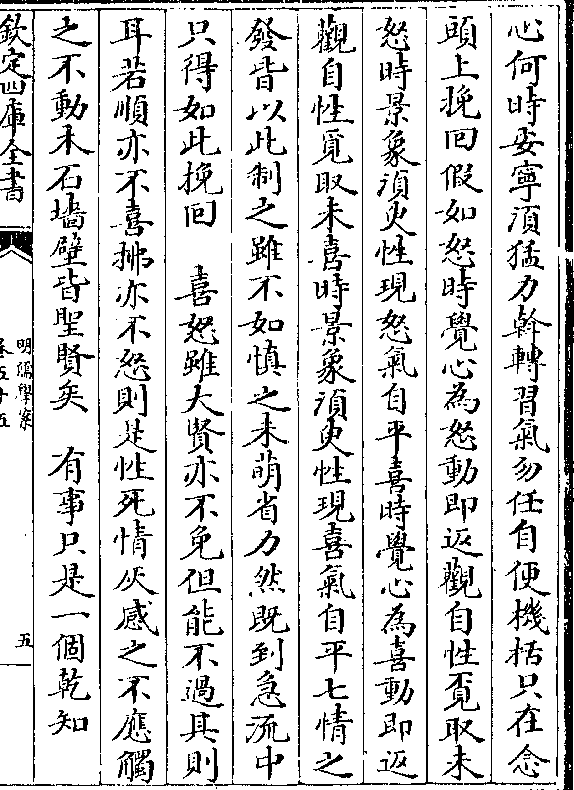 心何時妥寧須猛力斡轉習氣勿任自便機括只在念
頭上挽回假如怒時覺心為怒動即返觀自性覔取未
怒時景象須臾性現怒氣自平喜時覺心為喜動即返
觀自性覔取未喜時景象須臾性現喜氣自平七情之
發皆以此制之雖不如慎之未萌省力然既到急流中
只得如此挽回　喜怒雖大賢亦不免但能不過其則
耳若順亦不喜拂亦不怒則是性死情灰感之不應觸
之不動木石墻壁皆聖賢矣　有事只是一個乾知
欽定四庫全書
明儒學案
卷五十五
五